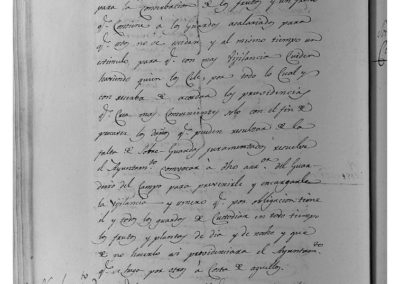 para la conservacion de los frutos y un freno
q.e contiene á los Guardas asalariados para
q.e estos no se vician, y al mismo tiempo un
estimulo para q.e con mas vigilancia cuiden
haviendo quien los cele, por todo lo cual y
con reserva de acordar las providencias
q.e crea mas convenientes solo con el fin de
precaver los daños q.e pueden resultar de la
falta de sobre Guardas juramentados resuelve
el Ayuntam.to convocar á dho del Guar
del Campo para prevenirle y encargarle
la vigilancia y esmero q.e por obligacion tiene
él y todos los guardas de custodiar en todo tiempo
los frutos y plantas de dia y de noche y que
de no hacerlo asi providenciara el Ayuntam.to
por otros á costa de aquellos.